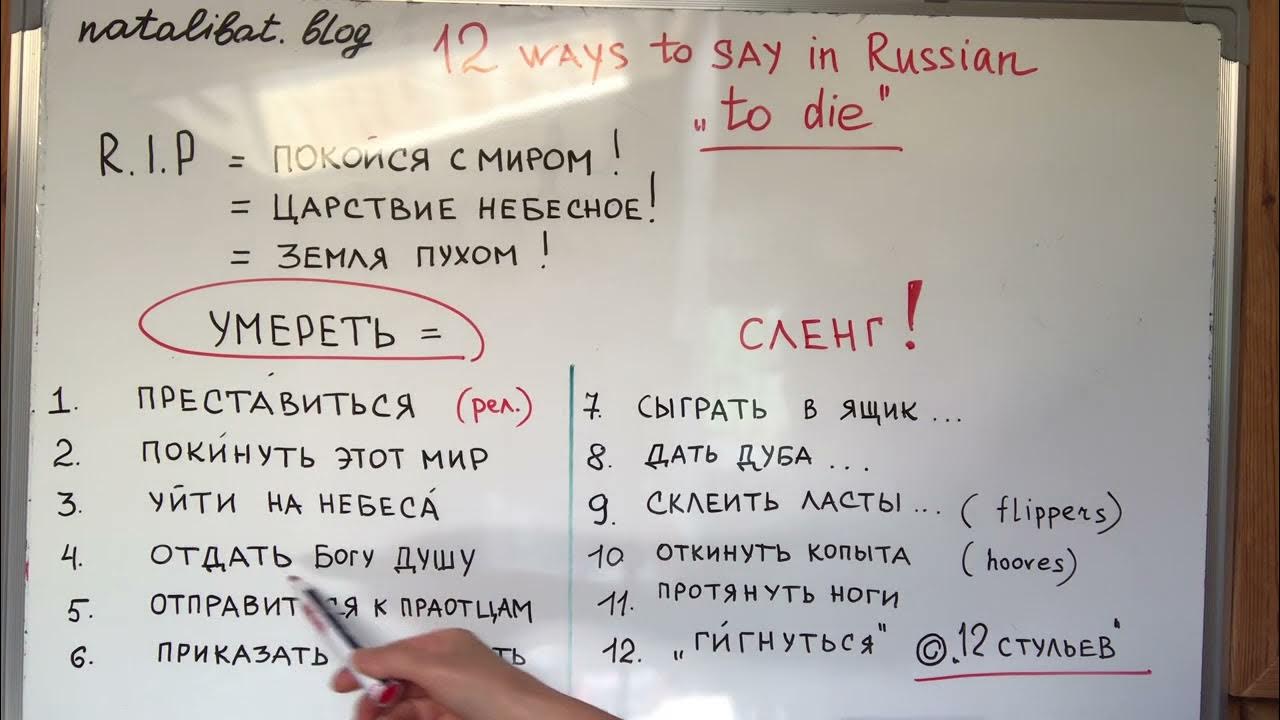 natalibat. blog
12 WAYS to SAY in Russian
„to die"
R.I.P = ПОКОЙСЯ С МИРОМ!
= ЦАРСТВИЕ НЕБЕСНОЕ!
= ЗЕМЛЯ ПУХОМ!
УМЕРЕТЬ =
1. ПРЕСТА́ВИТЬСЯ (рел.)
2. ПОКИ́НУТЬ ЭТОТ МИР
3. УЙТИ НА НЕБЕСА́
4. ОТДАТЬ БОГУ ДУШУ
5. К ПРАОТЦАМ
6. ПРИКАЗАТЬ
СЛЕНГ!
7. СЫГРАТЬ В ЯЩИК ...
8. ДАТЬ ДУБА ...
9. СКЛЕИТЬ ЛАСТЫ ... (flippers)
10 ОТКИНУТЬ КОПЫТА (hooves)
11. ПРОТЯНУТЬ НОГИ
12. „ГИ́ГНУТЬСЯ" ©.„12 СТУЛЬЕВ"